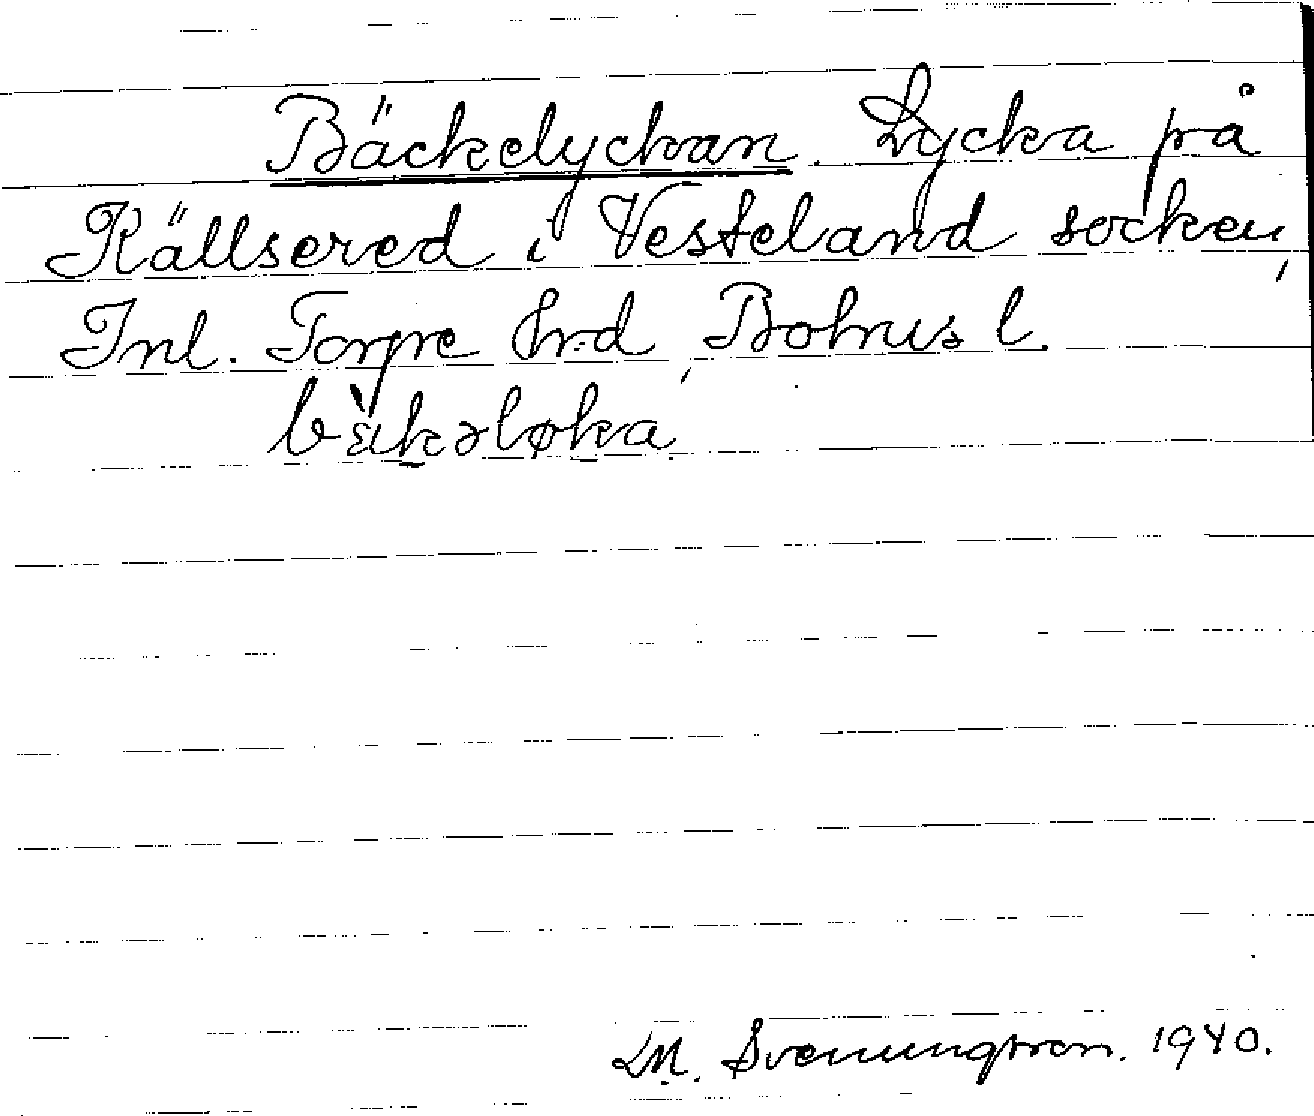 Bäckelyckan. Lycka på
Källsered i Vesteland socken,
Inl. Torpe hrd, Bohus l.
bɛ̀kəløka
M. Svenungsson. 1940.